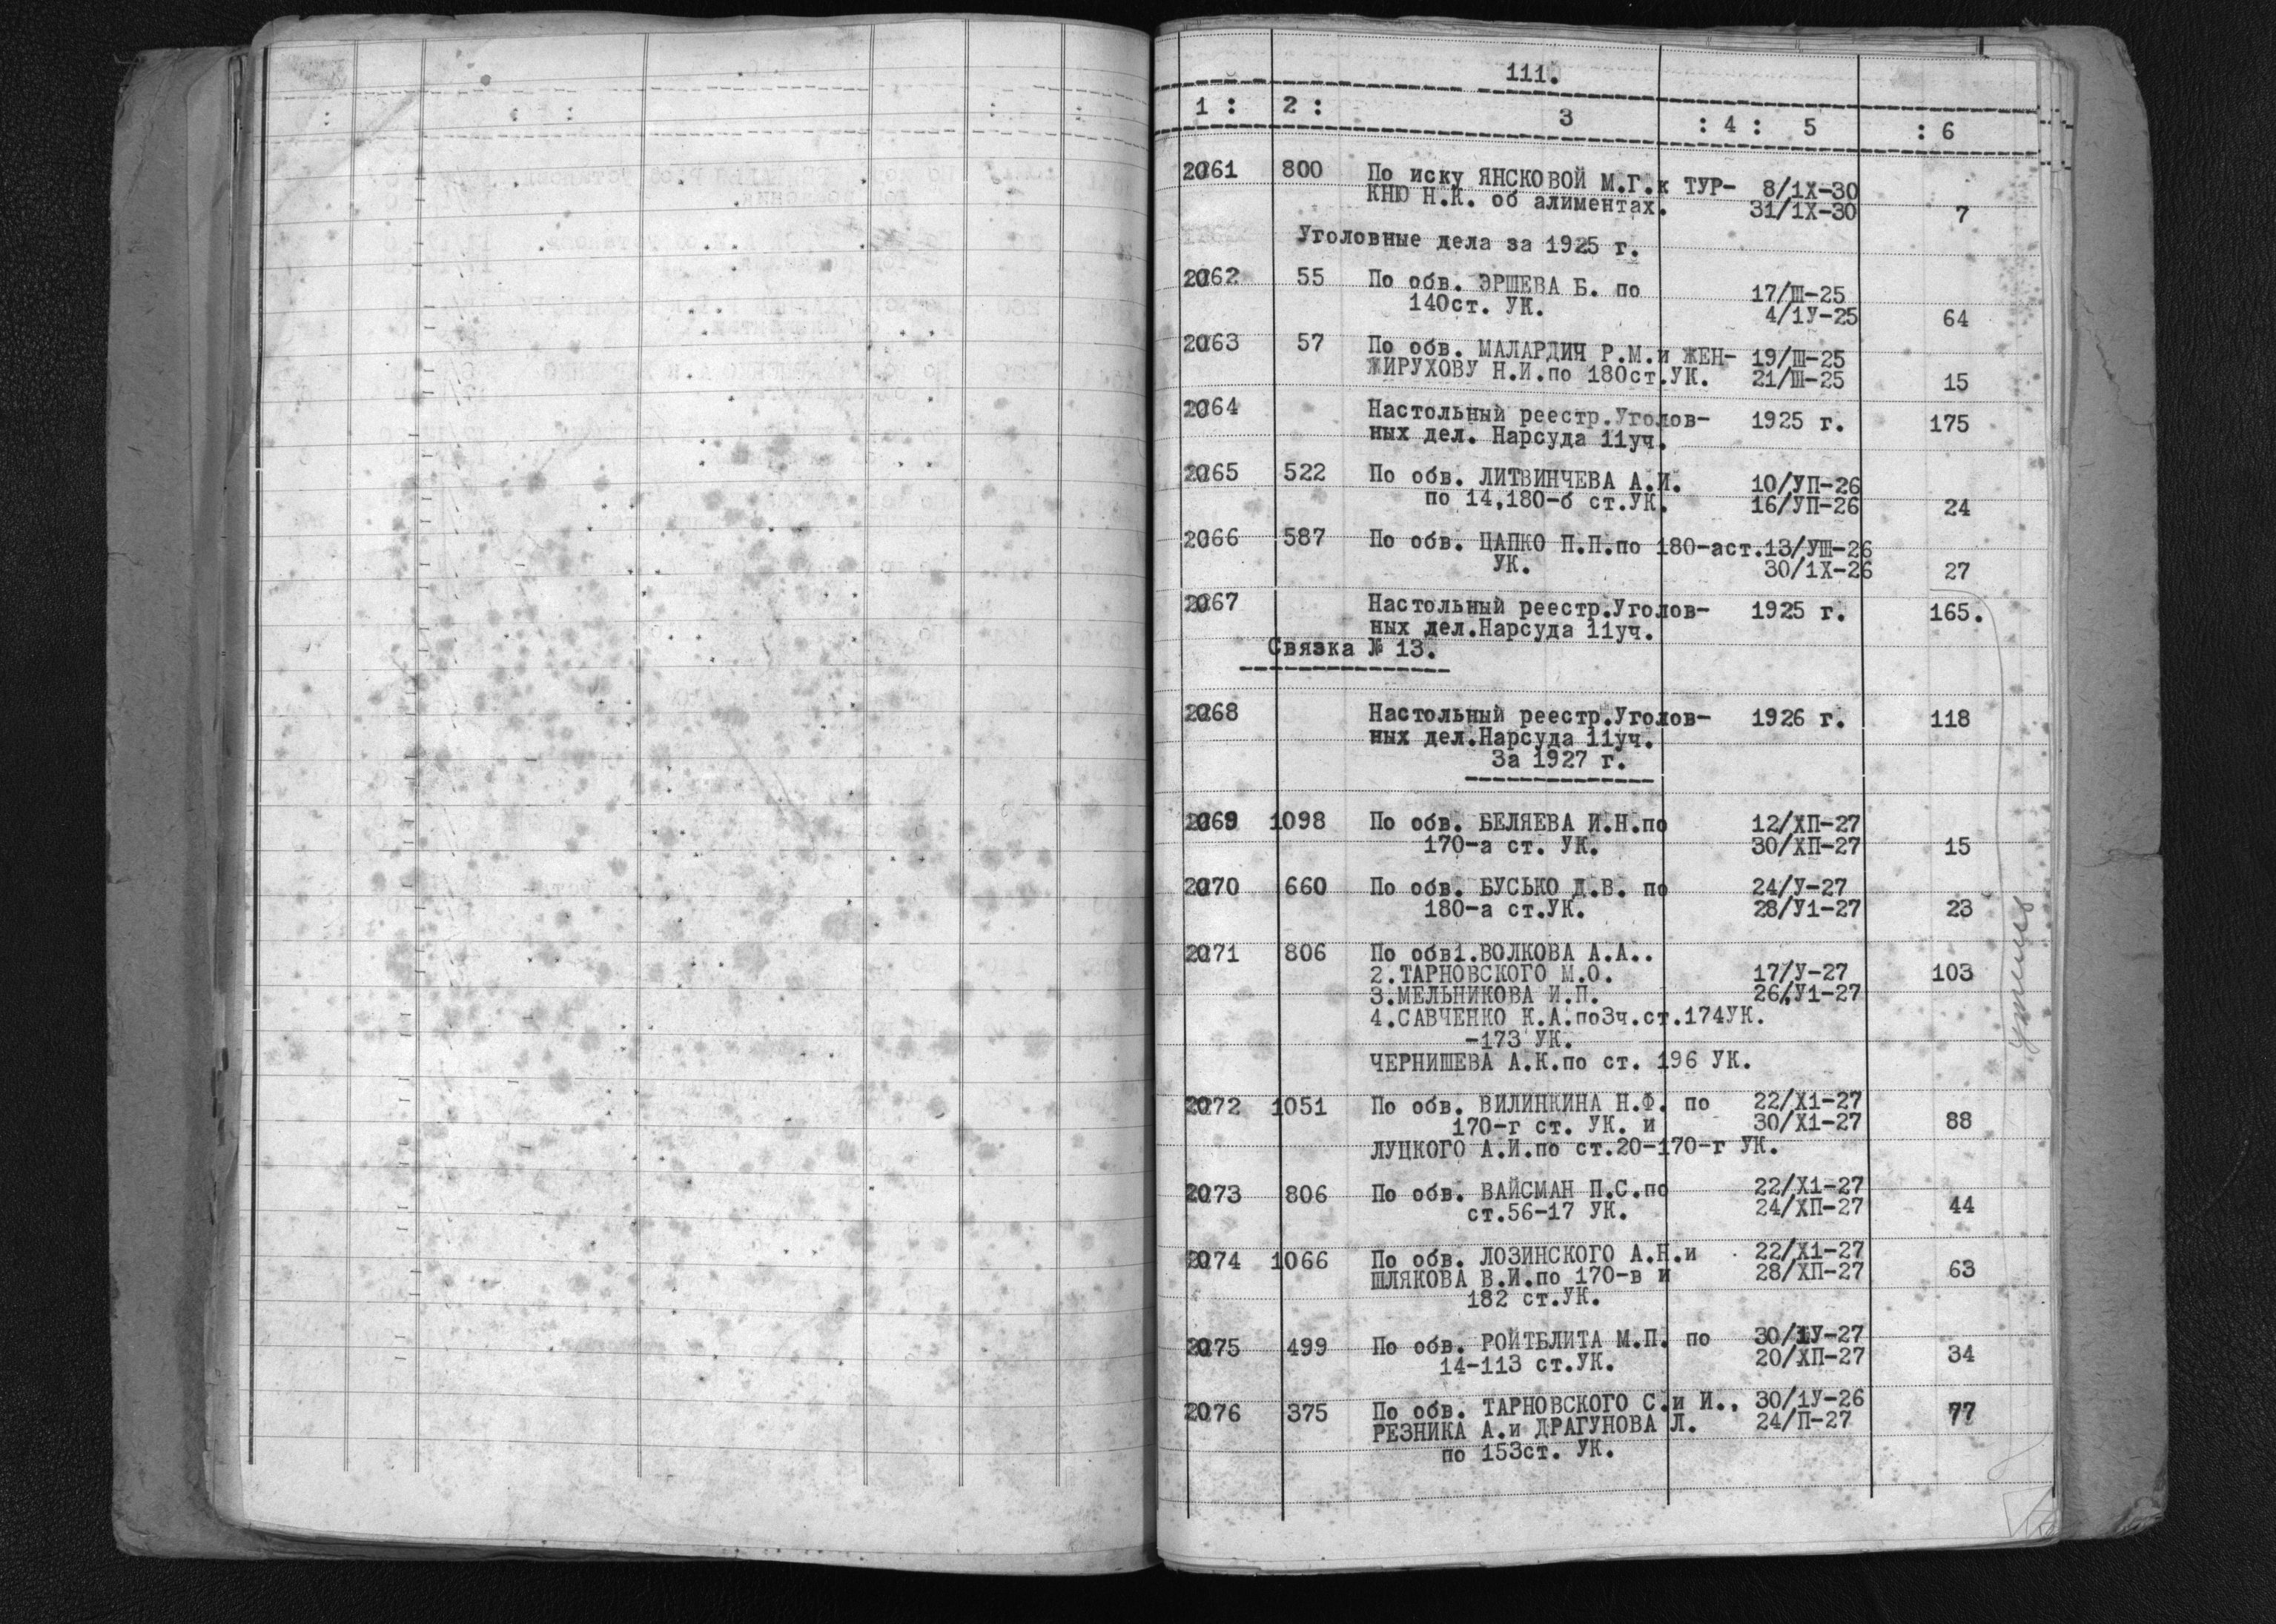 111.
1 : 2 : 3 : 4 : 5 : 6
2061 800 По иску ЯНСКОВОЙ М.Г.к ТУР- 8/1Х-30
КНЮ Н.К. об алиментах. 31/1Х-30 7
Уголовные дела за 1925 г.
2062 55 По обв. ЭРШЕВА Б. по 17/Ш-25
140ст. УК. 4/1У-25 64
2063 57 По обв. МАЛАРДИЧ Р.М.и ЖЕН- 19/Ш-25
ЖИРУХОВУ Н.И.по 180ст.УК. 21/Ш-25 15
2064 Настольный реестр.Уголов- 1925 г. 175
ных дел. Нарсуда 11уч.
2065 522 По обв. ЛИТВИНЧЕВА А.И. 10/УП-26
по 14,180-б ст.УК. 16/УП-26 24
2066 587 По обв. ЦАПКО П.П.по 180-аст.13/УШ-26
УК. 30/1Х-26 27
2067 Настольный реестр.Уголов- 1925 г. 165.
ных дел.Нарсуда 11уч.
Связка № 13.
2068 Настольный реестр.Уголов- 1926 г. 118
ных дел.Нарсуда 11уч.
За 1927 г.
2069 1098 По обв. БЕЛЯЕВА И.Н.по 12/ХП-27
170-а ст. УК. 30/ХП-27 15
2070 660 По обв. БУСЬКО Д.В. по 24/У-27
180-а ст.УК. 28/У1-27 23
2071 806 По обв1.ВОЛКОВА А.А..
2.ТАРНОВСКОГО М.О. 17/У-27 103
3.МЕЛЬНИКОВА И.П. 26/У1-27
4.САВЧЕНКО К.А.по3ч.ст.174УК.
-173 УК.
ЧЕРНИШЕВА А.К.по ст. 196 УК.
2072 1051 По обв. ВИЛИНКИНА Н.Ф. по 22/Х1-27
170-г ст. УК. и 30/Х1-27 88
ЛУЦКОГО А.И.по ст.20-170-г УК.
2073 806 По обв. ВАЙСМАН П.С.по 22/Х1-27
ст.56-17 УК. 24/ХП-27 44
2074 1066 По обв. ЛОЗИНСКОГО А.Н.и 22/Х1-27
ШЛЯКОВА В.И.по 170-в и 28/ХП-27 63
182 ст.УК.
2075 499 По обв. РОЙТБЛИТА М.П. по 30/1У-27
14-113 ст.УК. 20/ХП-27 34
2076 375 По обв. ТАРНОВСКОГО С.и И.. 30/1У-26
РЕЗНИКА А.и ДРАГУНОВА Л. 24/П-27 77
по 153ст. УК.